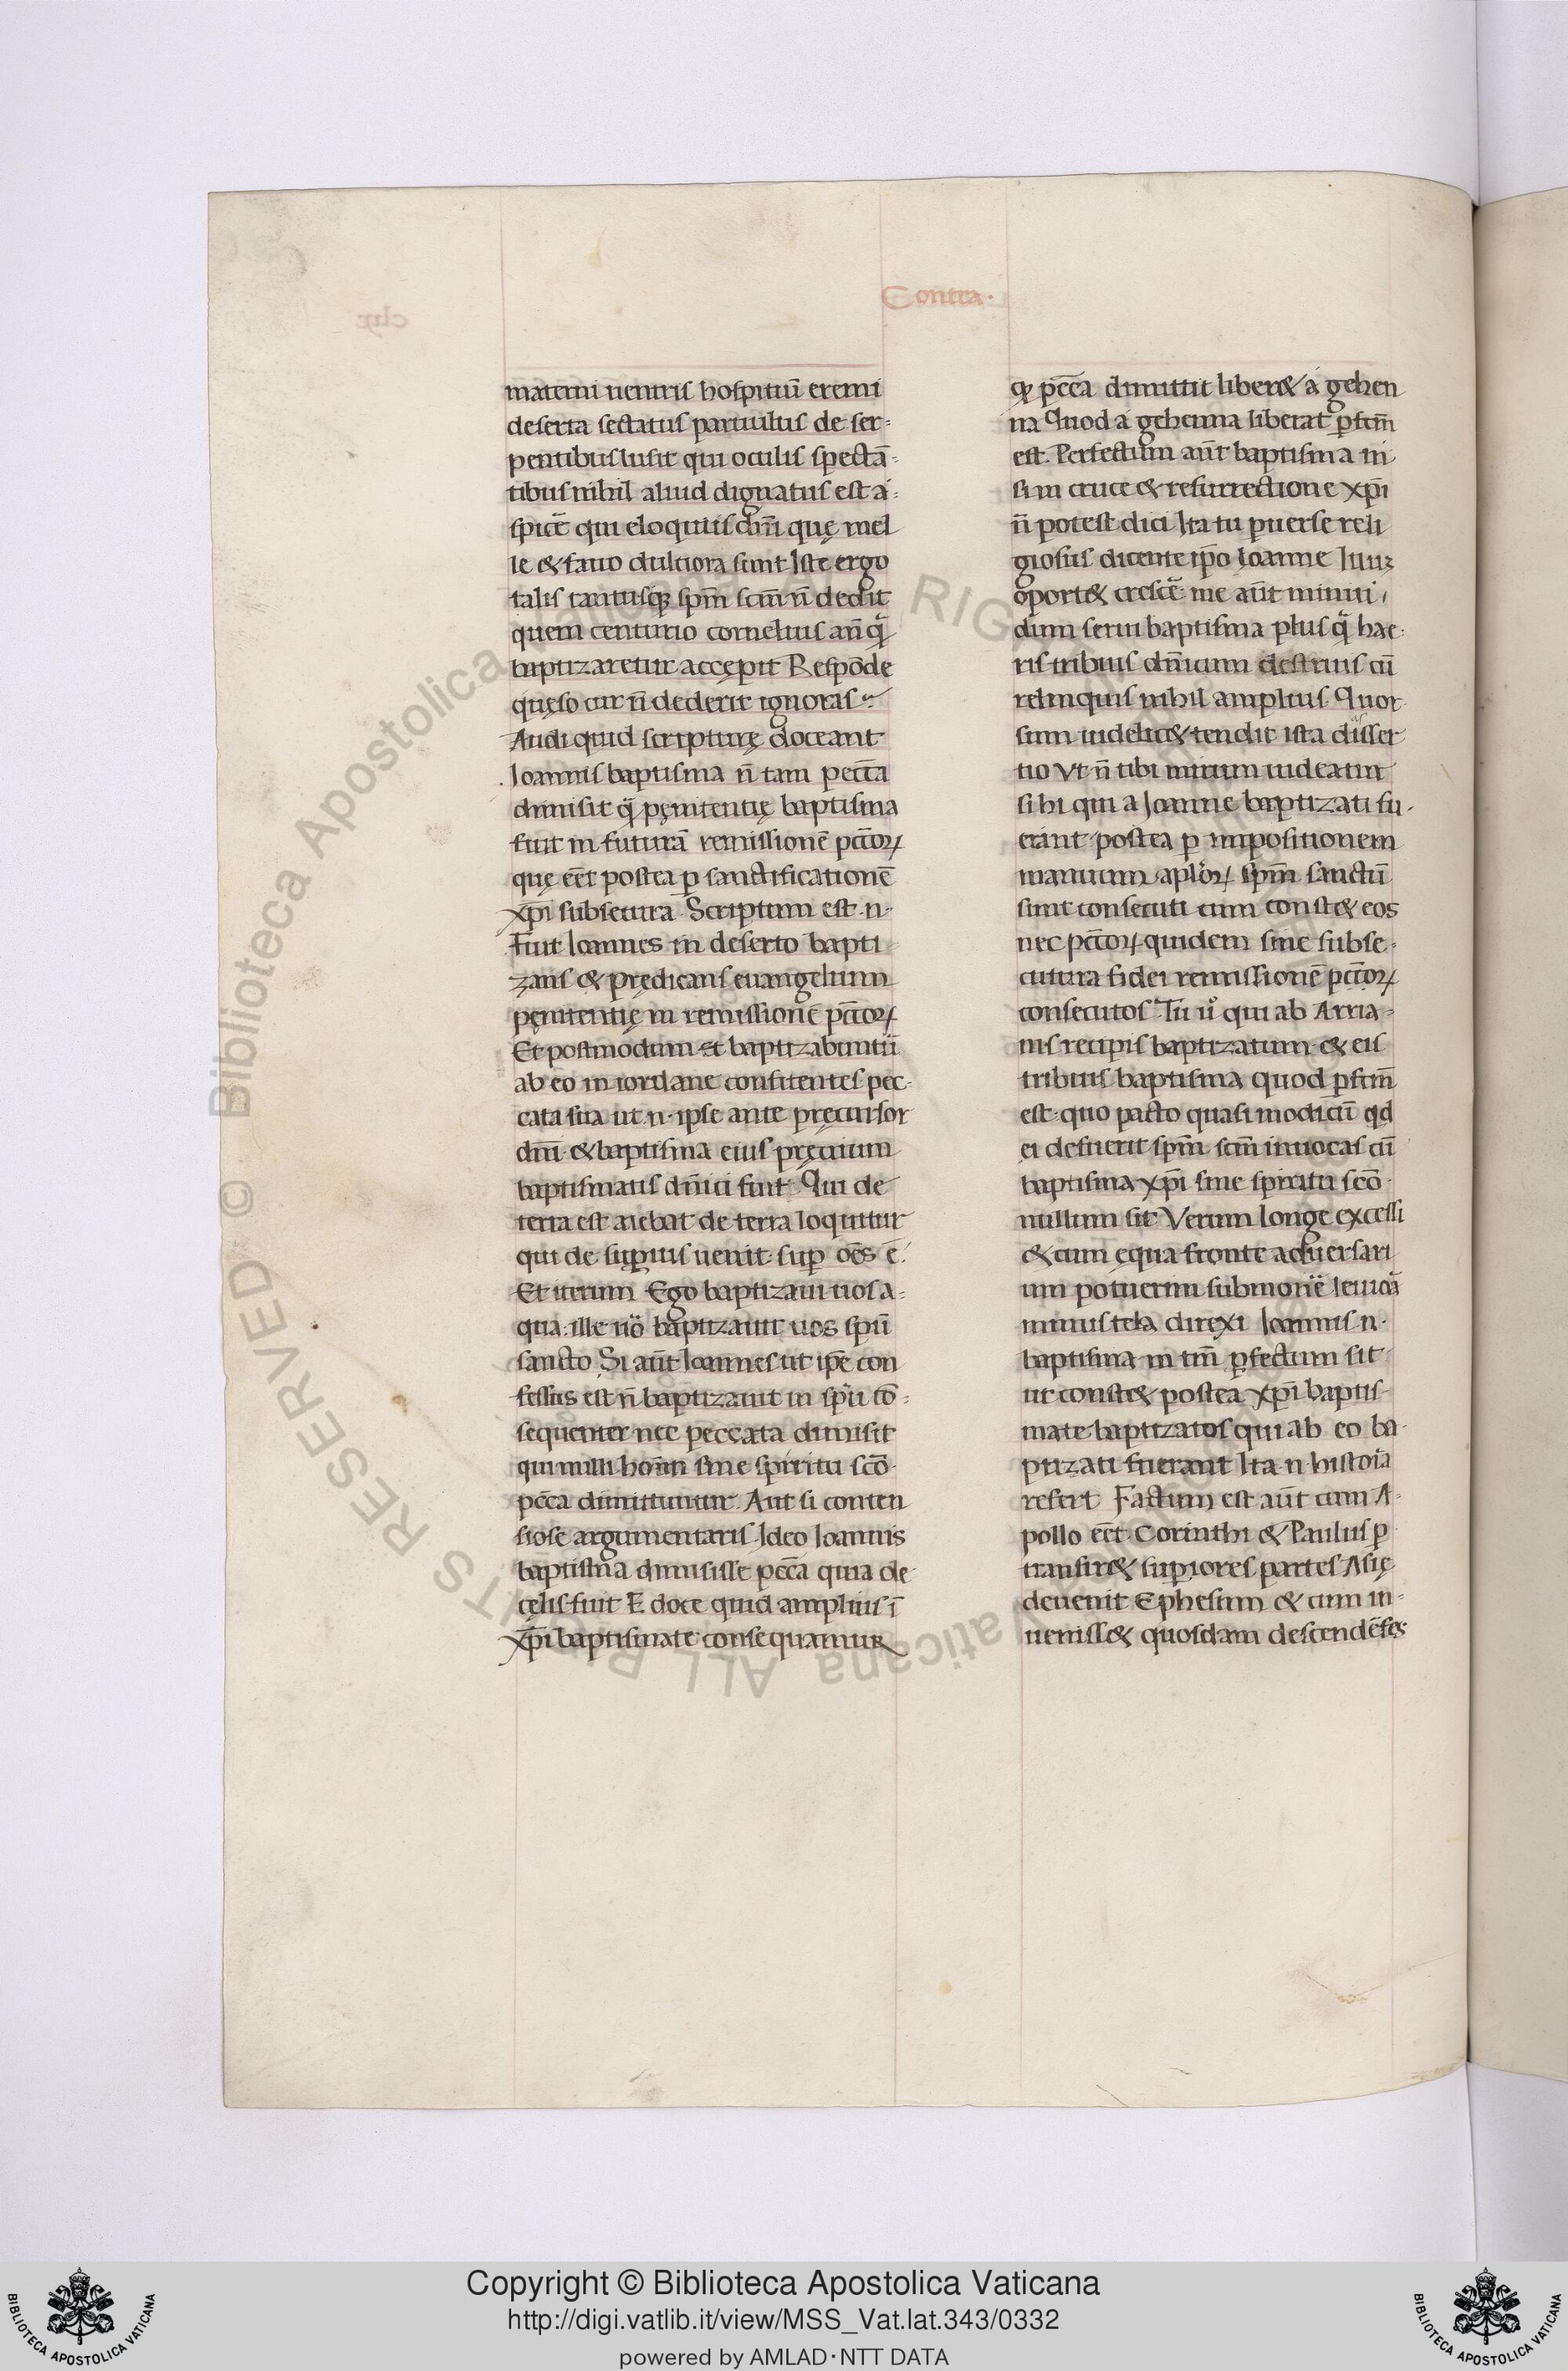 Contra·
materni uentris hospitiū eremi
deserta sectatus paruulus de ser-
pentibus lusit qui oculis spectā-
tibus nihil aliud dignatus est a-
spicē qui eloquiis dn̄i quę mel
le & fauo dulciora sunt Iste ergo
talis tantusq; sp̄m scm̄ n̄ dedit
quem centurio cornelius an̄q̄
baptizaretur accępit Respōde
quęso cur n̄ dederit ignoras
Audi quid scripturę doceant
Ioannis baptisma n̄ tam pecc̄a
dimisit q̄ pęnitentię baptisma
fuit in futurā remissionē pcc̄oꝝ
quę eēt postea ꝑ sanctificationē
xp̄i subsecura Scriptum est n·
Fuit Ioannes in deserto bapti
zans & prędicans euangelium
pęnitentię in remissionē pcc̄oꝝ
Et postmodum et baptizabuntū
ab eo in iordane confitentes pec-
cata sua ut n· ipse ante pręcursor
dn̄i & baptisma eius pręuium
baptismatis dn̄ici fuit Qui de
terra est aiebat de terra loquitur
qui de suꝑius uenit suꝑ oēs ē·
Et iterum Ego baptizaui uos a-
qua ille uō baptizauit uos spū
sancto Si aūt Ioannes ut ip̄e con
fessus est n̄ baptizauit in spū cō-
sequenter nec peccata dimisit
qui nulli hoīm sine spiritu scō
pcc̄a dimittuntur Aut si conten
siose argumentaris Ideo Ioannis
baptisma dimisisse pcc̄a quia de
cęlis fuit Edoce quid amplius ī
xp̄i baptismate consequamur
q; pcc̄a dimittit liber& á gehen
na Quod á gehenna liberat ꝑfctm̄
est Perfectum aūt baptisma ni
si in cruce & resurrectione xp̄i
n̄ potest dici Ita tu ꝑuerse reli
giosus dicente ip̄o Ioanne Illuꝫ
oport& crescē me aūt minui
dum serui baptisma plus q̄ hae-
ris tribuis dn̄icum destruis cū
relinquis nihil amplius Quor
sum uidelic& tendit ista disser
tio Vt n̄ tibi mirum uideatur
si hi qui a Ioanne baptizati fu-
erant postea ꝑ impositionem
manuum apl'oꝝ sp̄m sanctū
sunt consecuti cum const& eos
nec pcc̄oꝝ quidem sine subse-
cutura fidei remissionē pcc̄oꝝ
consecutos Tu uº qui ab Arria-
nis recipis baptizatum & eis
tribuis baptisma quod ꝑfctm̄
est quo pacto quasi modicū qd
ei defuerit sp̄m scm̄ inuocas cū
baptisma xp̄i sine spiritu scō
nullum sit Verum longe excessi
& cum ęqua fronte aduersari
um potuerim submouē leuioā
minus tela direxi Ioannis n·
baptisma in tm̄ ꝑfectum sit
ut const& postea xp̄i baptis-
mate baptizatos qui ab eo ba-
ptizati fuerant Ita n historia
refert Factum est aūt cum A-
pollo eēt Corinthi & Paulus ꝑ
transir& suꝑiores partes Asię
deuenit Ephesum & cum in-
ueniss& quosdam descendētes
Copyright © Biblioteca Apostolica Vaticana
http://digi.vatlib.it/view/MSS_Vat.lat.343/0332
powered by AMLAD·NTT DATA
© Biblioteca Apostolica Vaticana ALL RIGHTS RESERVED
BIBLIOTECA APOSTOLICA VATICANA
BIBLIOTECA APOSTOLICA VATICANA